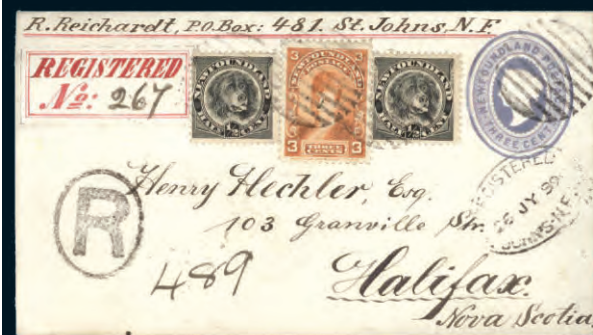 R. Reichardt, P.O. Box: 481. St. Johns, N.F.
REGISTERED
No: 267
NEWFOUNDLAND
½ ½
HALF CENT
NEWFOUNDLAND
3 3
3 THREE CENTS 3
NEWFOUNDLAND
½ ½
HALF CENT
NEWFOUNDLAND POSTAGE
THREE CENTS
REGISTERED
26 JY 99
ST. JOHN'S N.F.
R
Henry Hechler, Esq.
103 Granville Str.
489
Halifax.
Nova Scotia